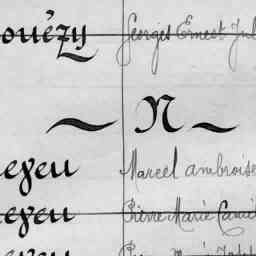 ouézy Georges Ernest Jul
~ N ~
eyeu Marcel ambroise
eyeu Pierre Marie Camil